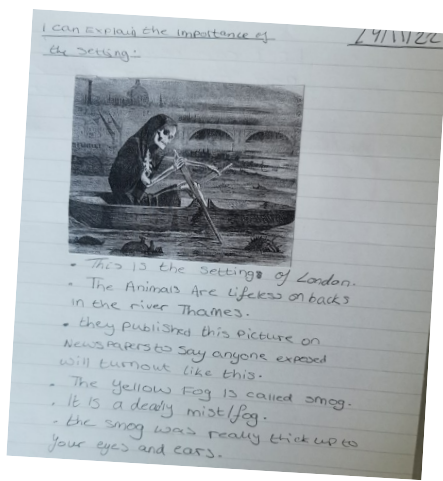 I can Explain the Importance of
the Setting:
24/11/22
• This is the settings of London.
• The Animals Are lifeless on backs
in the river Thames.
• they published this picture on
Newspapers to say anyone exposed
will turnout like this.
• The yellow Fog is called smog.
• It is a deadly mist/fog.
- the smog was really thick up to
your eyes and ears.